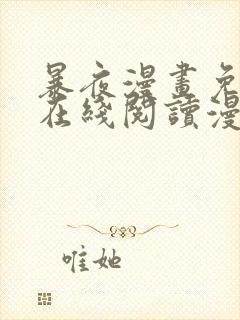 暴夜漫畫免
在綫閱讀漫
唯她